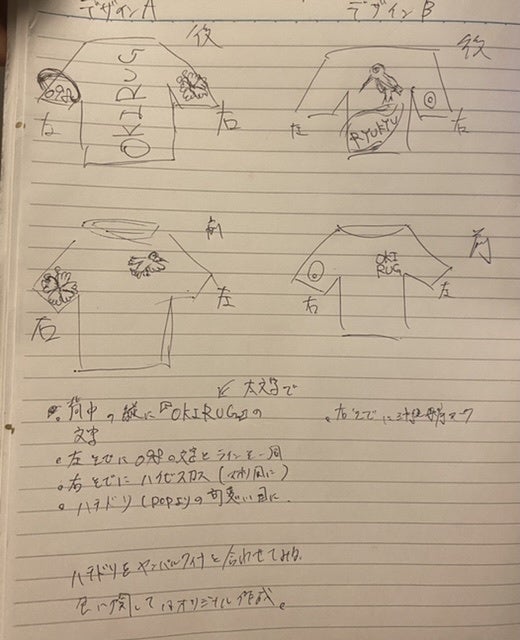 デザインA
デザインB
後
後
OKIRUG
左
右
左
右
RYUKYU
前
前
OKI
RUG
右
左
右
左
太文字で
背中の縦に『OKIRUG』の
文字
右そでに
左そでに の文字とラインを一周
右そでにハイビスカス
ハチドリ (POPよりの可愛い目に
ハチドリをヤンバルクイナと合わせてみる
色に関してはオリジナル作成。